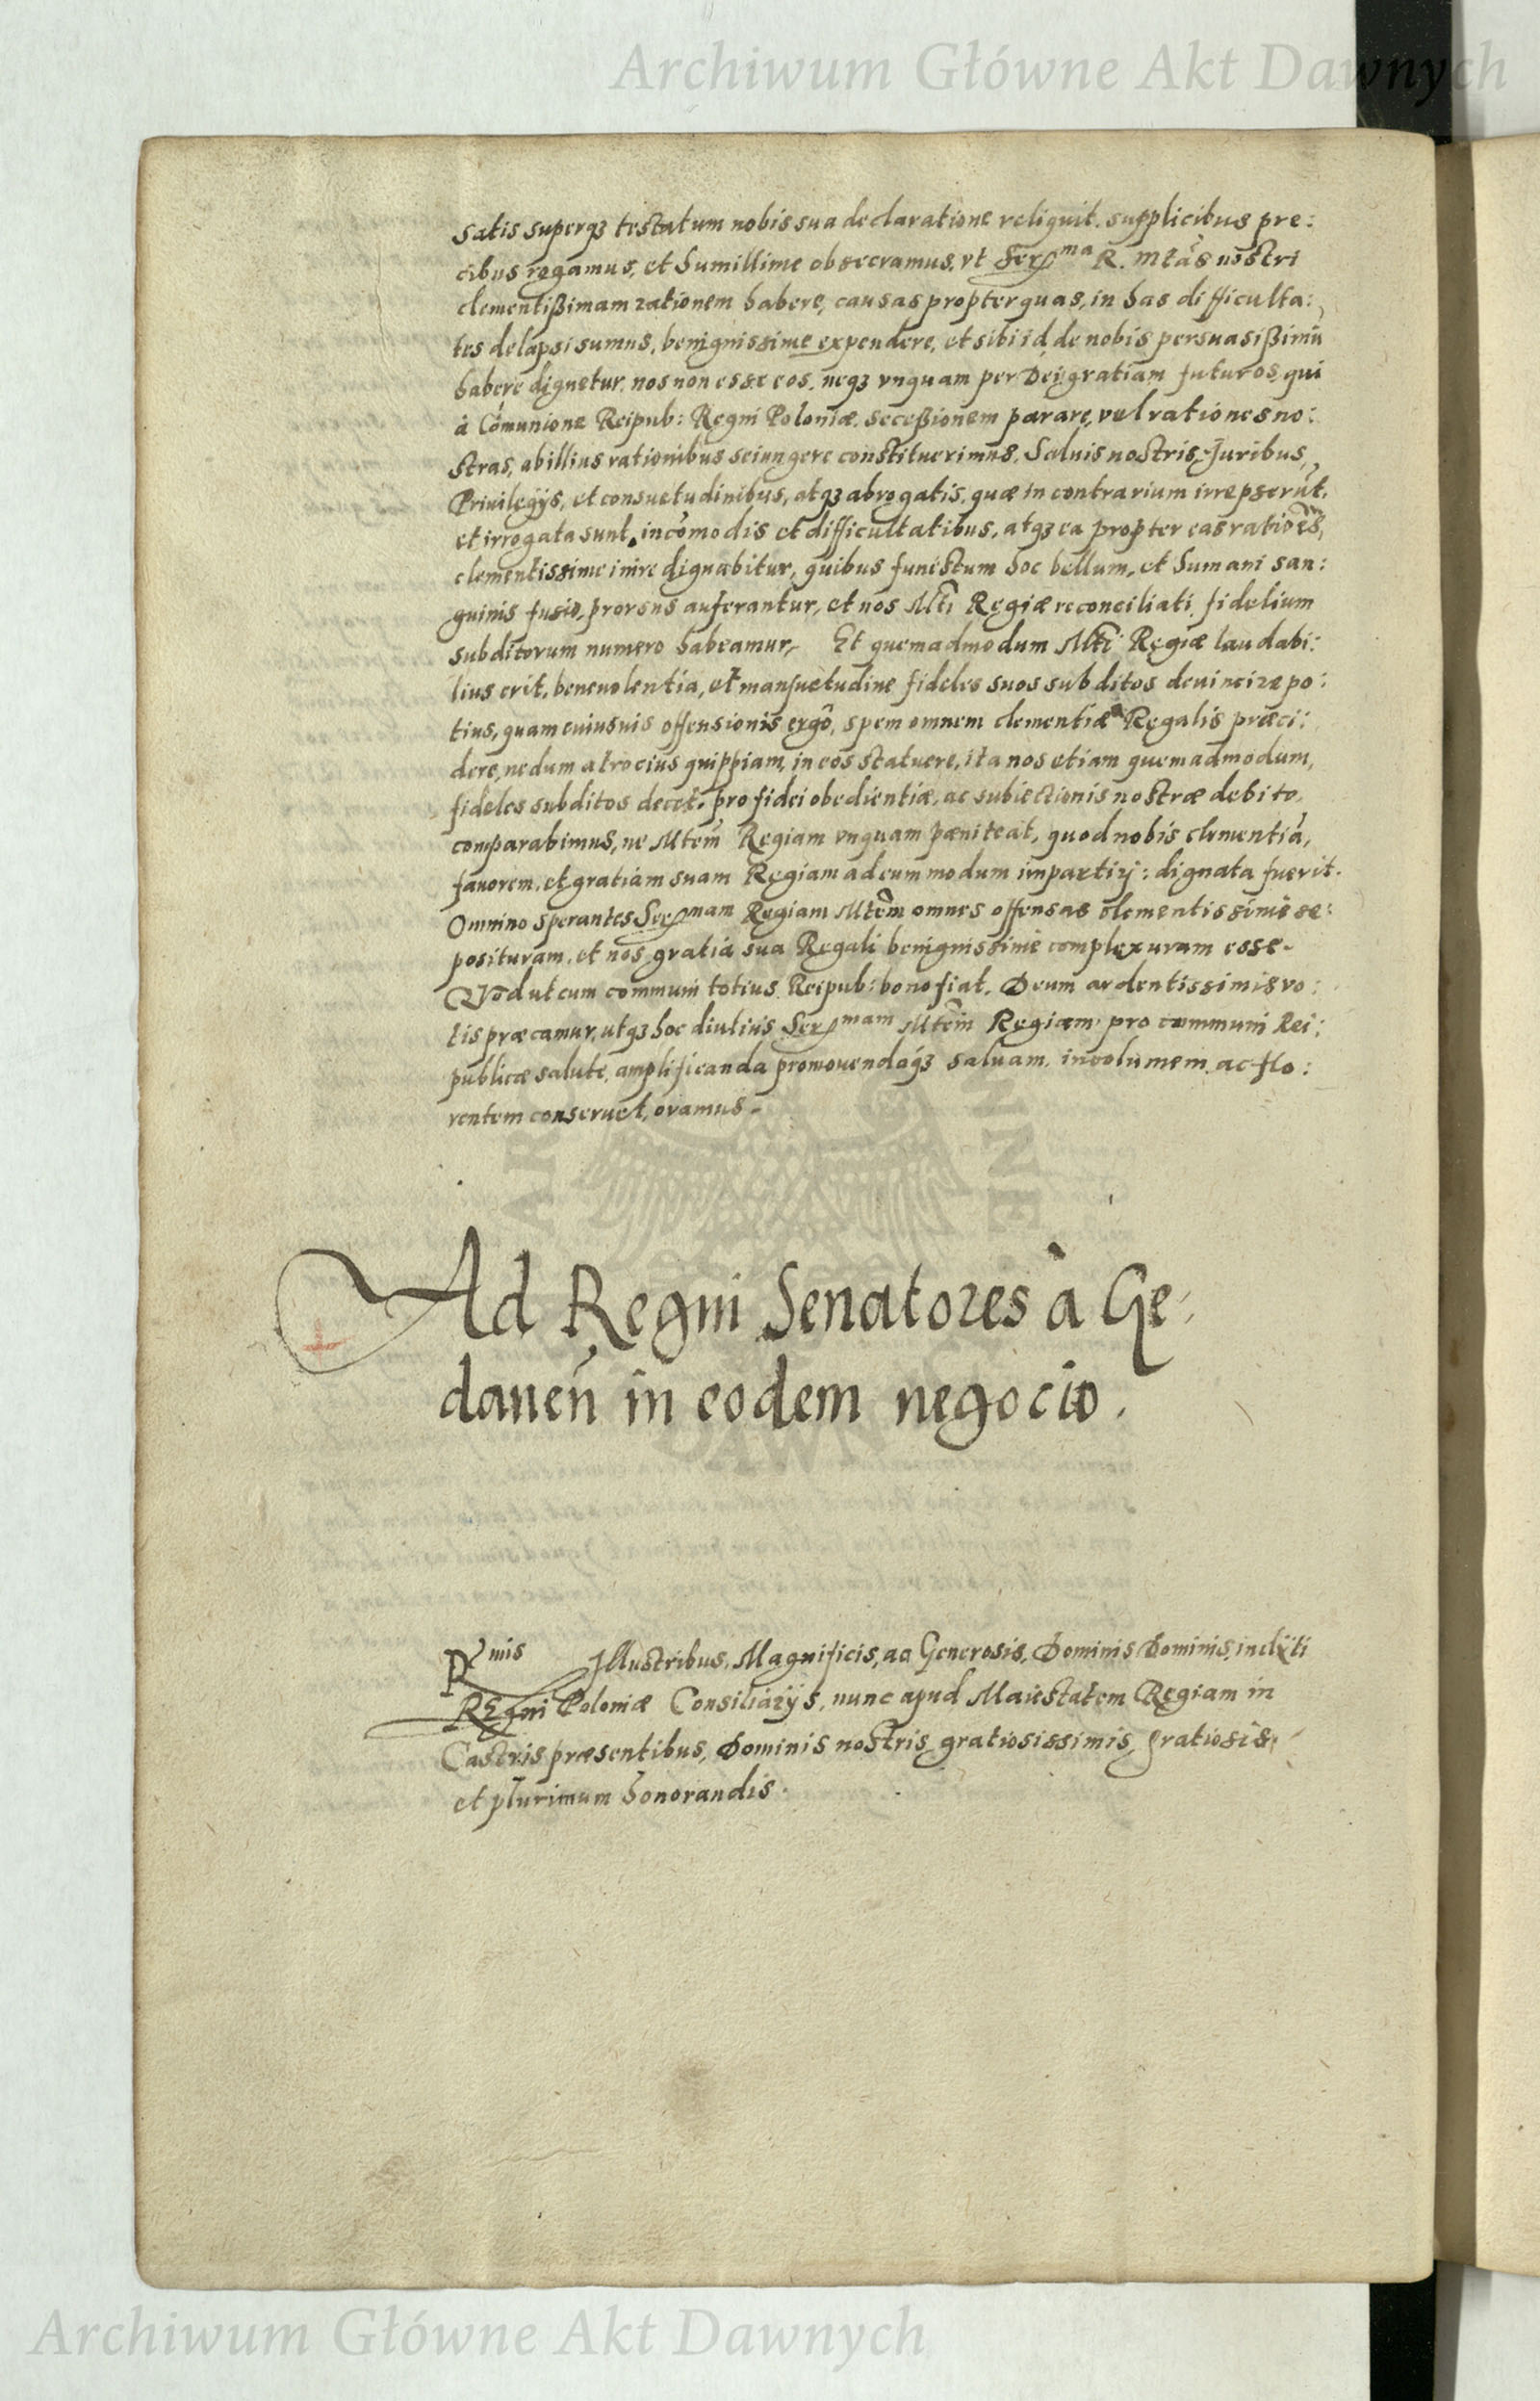 Archiwum Główne Akt Dawnych
satis superqȝ testatum nobis sua declaratione reliquit. supplicibus pre:
cibus rogamus, et humillime obsecramus, vt Serᵐᵃ R. Mtas nostri
clementißimam rationem habere, causas propter quas, in has difficulta:
tes delapsi sumus, benignissime expendere, et sibi id de nobis persuasißimũ
habere dignetur, nos non esse eos, neqȝ vnquam per Dei gratiam futuros, qui
à Cõmunione Reipub: Regni Poloniæ, seceßionem parare, vel rationes no:
stras, ab illius rationibus seiungere constituerimus. Saluis nostris Juribus,
Priuilegijs, et consuetudinibus, atqȝ abrogatis, quæ in contrarium irrepserũt,
et irrogata sunt, incõmodis et difficultatibus, atqȝ ea propter eas rationes,
clementissime inire dignabitur, quibus funestum hoc bellum, et humani san:
guinis fusio, prorsus auferantur, et nos Mti Regiæ reconciliati, fidelium
subditorum numero habeamur, Et quemadmodum Mti Regiæ laudabi:
lius erit, beneuolentia, et mansuetudine fideles suos subditos deuincire po:
tius, quam cuiusuis offensionis ergô, spem omnem clementiæ Regalis præci:
dere, nedum atrocius quippiam, in eos statuere, ita nos etiam quemadmodum,
fideles subditos decet, pro fidei obedientiæ, ac subiectionis nostræ debito,
comparabimus, ne Mtem Regiam vnquam pæniteat, quod nobis clementiã,
fauorem, et gratiam suam Regiam ad eum modum impartirj: dignata fuerit.
Omnino sperantes Serᵐᵃᵐ Regiam Mtem omnes offensas clementissimè se:
posituram, et nos gratia sua Regali benignissimè complexuram esse.
Quod ut cum communi totius Reipub: bono fiat, Deum ardentissimis vo:
tis præcamur, utqȝ hoc diutius Serᵐᵃᵐ Mtem Regiam pro communi Rei:
publicæ salute, amplificanda promouendaqȝ saluam, incolumem, ac flo:
rentem conseruet, oramus.
Ad Regni Senatores à Ge:
daneñ in eodem negocio.
Rᵐⁱˢ Illustribus, Magnificis, ac Generosis, Dominis Dominis, inclyti
REgni Poloniæ Consiliarijs, nunc apud Maiestatem Regiam in
Castris præsentibus, Dominis nostris gratiosissimis, gratiosis,
et plurimum honorandis.
Archiwum Główne Akt Dawnych